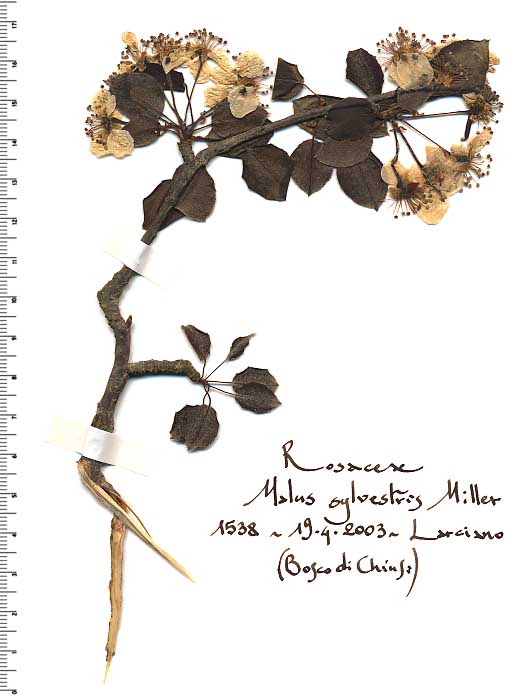 Rosaceae
Malus sylvestris Miller
1538 ~ 19.4.2003 ~ Larciano
(Bosco di Chiusi)